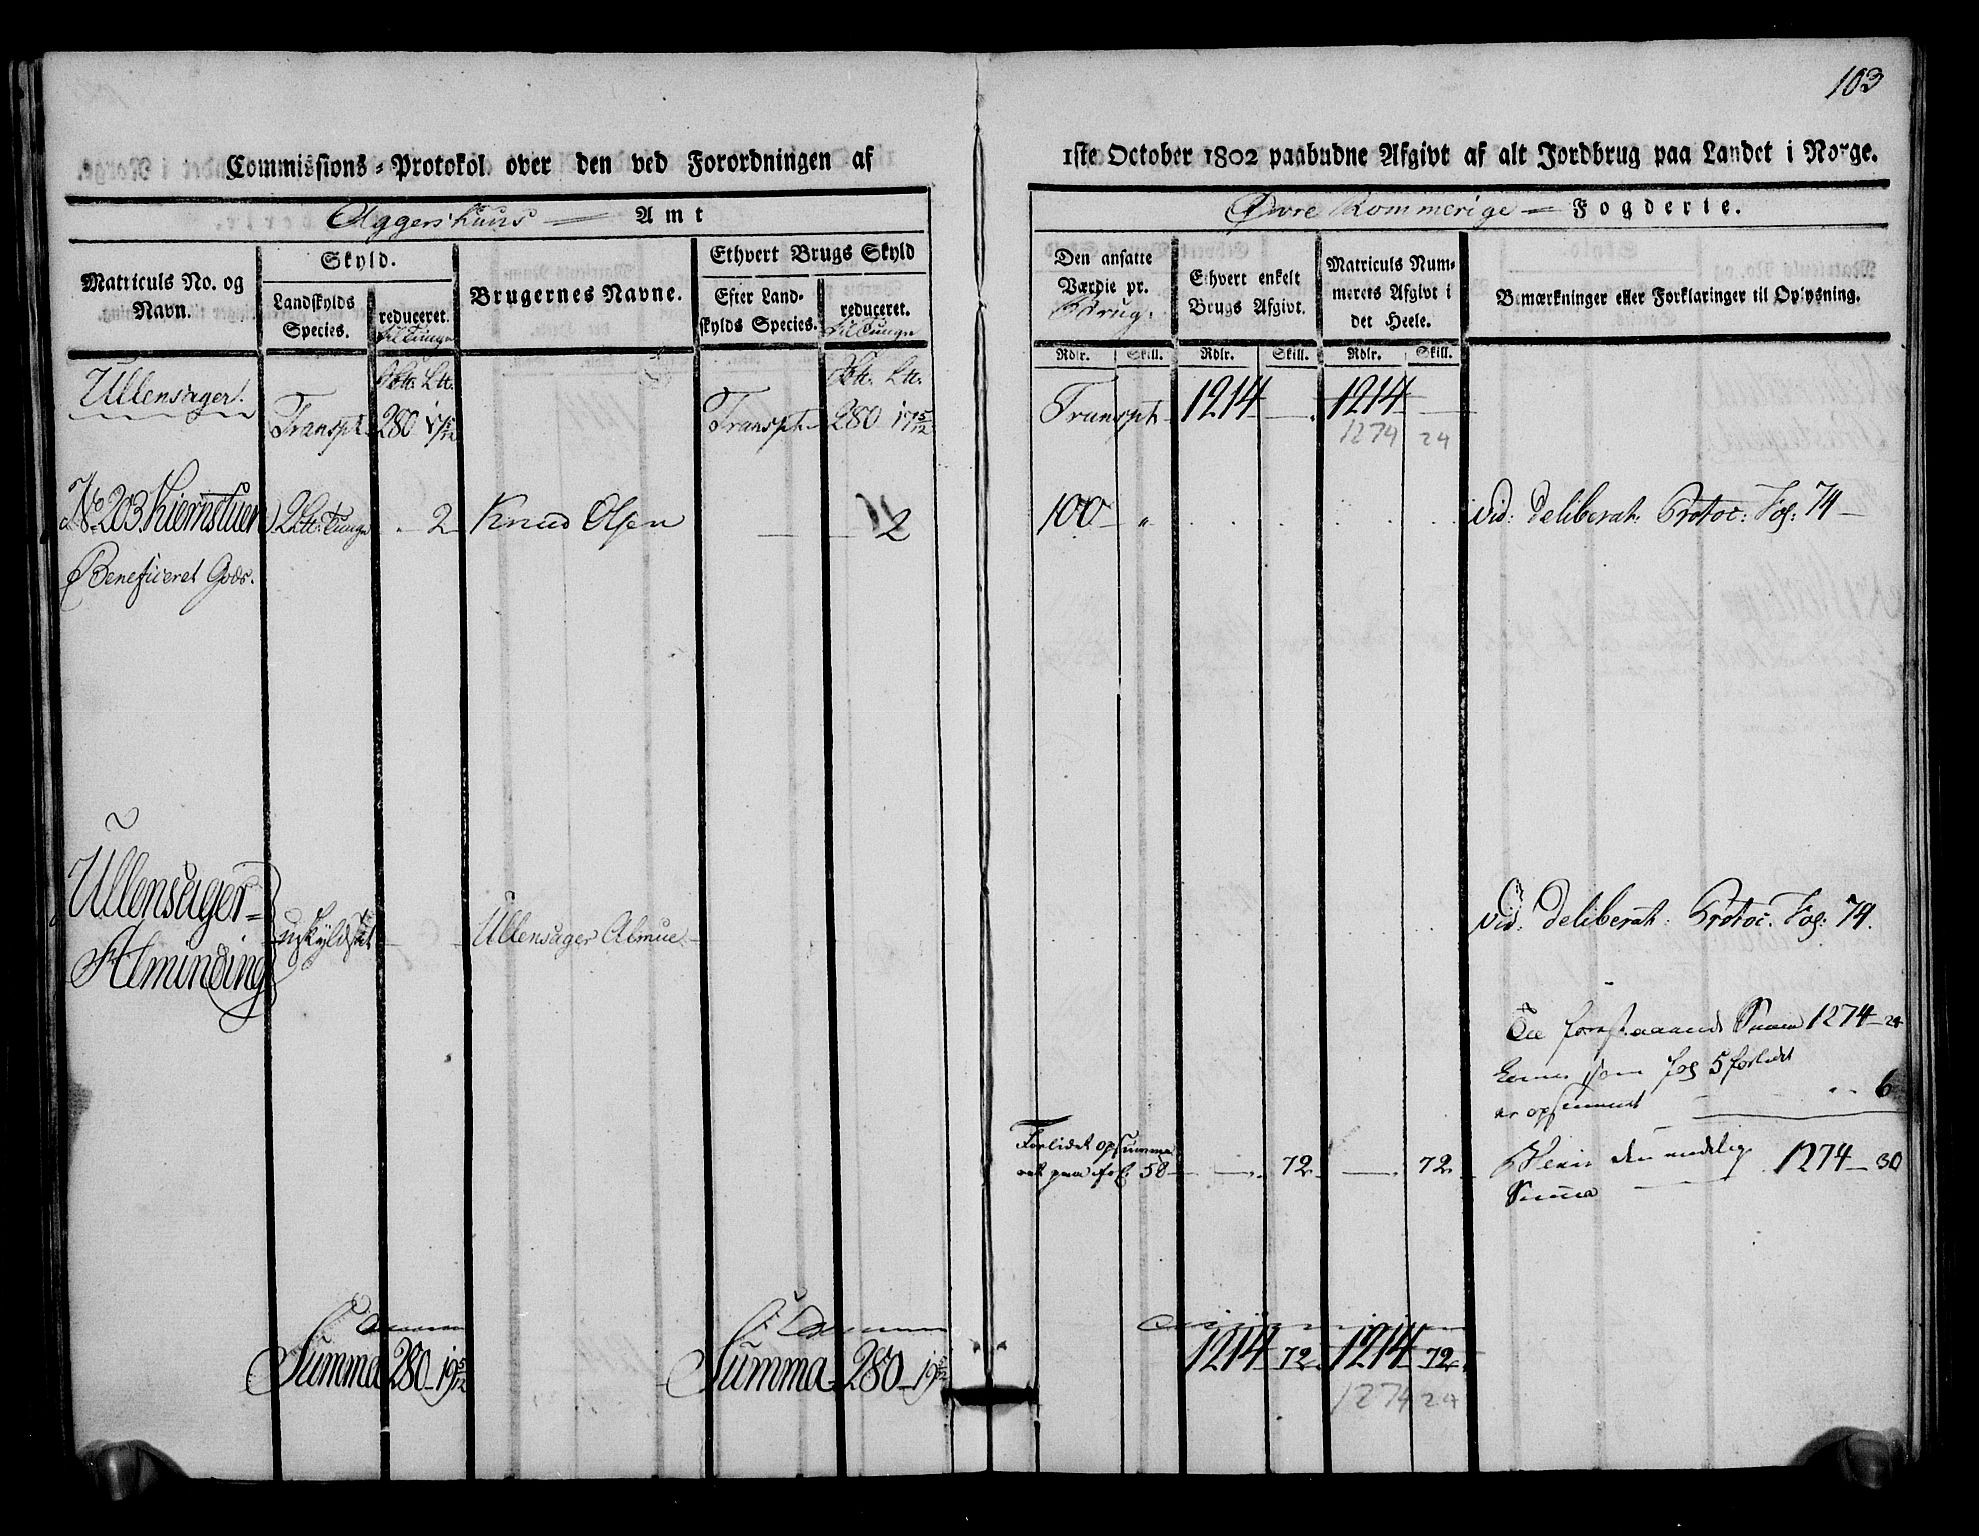 103
Commissions-Protokol over den ved Forordningen af
1ste October 1802 paabudne Afgivt af alt Jordbrug paa Landet i Norge.
Aggershuus Amt
Øvre Rommerige Fogderie.
Matriculs No. og Navn.
Skyld.
Landskylds Species.
reduceret. til Tunge
Brugernes Navne.
Ethvert Brugs Skyld
Efter Landskylds Species.
reduceret. til Tunge
Den ansatte Værdie pr. Brug.
Ethvert enkelt Brugs Afgivt.
Matriculs Nummerets Afgivt i det Heele.
Bemærkninger eller Forklaringer til Oplysning.
Rdlr. Skill. Rdlr. Skill. Rdlr. Skill.
Ullensager. Transpt. 280 17 5/12 Transpt. 280 17 5/12 Transpt. 1214 — 1214 —
1274 24
No. 203 Kiernstuen 2 Ltt. Tunge 2 Knud Olsen — 2 100 — " vid: deliberat: Protoc: Fol: 74
Beneficeret Gods.
Ullensager Alminding uskyldsat — Ullensager Almue — vid: deliberat: Protoc: Fol: 74.
Til forestaaende Summa 1274 — 24
kommer som Fol 5 forbidt
er opsummeret 6
Forbidet opsummeret paa fol. 58 — 72 — 72
Bliver den endelig Summa 1274 — 30
Summa 280 — 19 5/12 Summa 280 — 19 5/12 1214 — 72 1214 — 72
1274 24